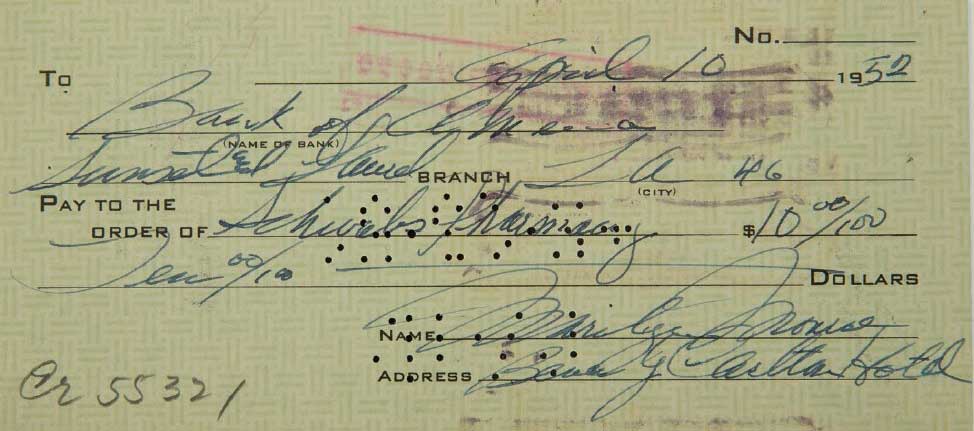 No.
To April 10 1952
Bank of America
(NAME OF BANK)
Sunset & Laurel BRANCH LA 46
(CITY)
PAY TO THE
ORDER OF Schwabs Pharmacy $10 00/100
Ten 00/100 DOLLARS
NAME Marilyn Monroe
ADDRESS Beverly Carlton Hotel
Cr 55321